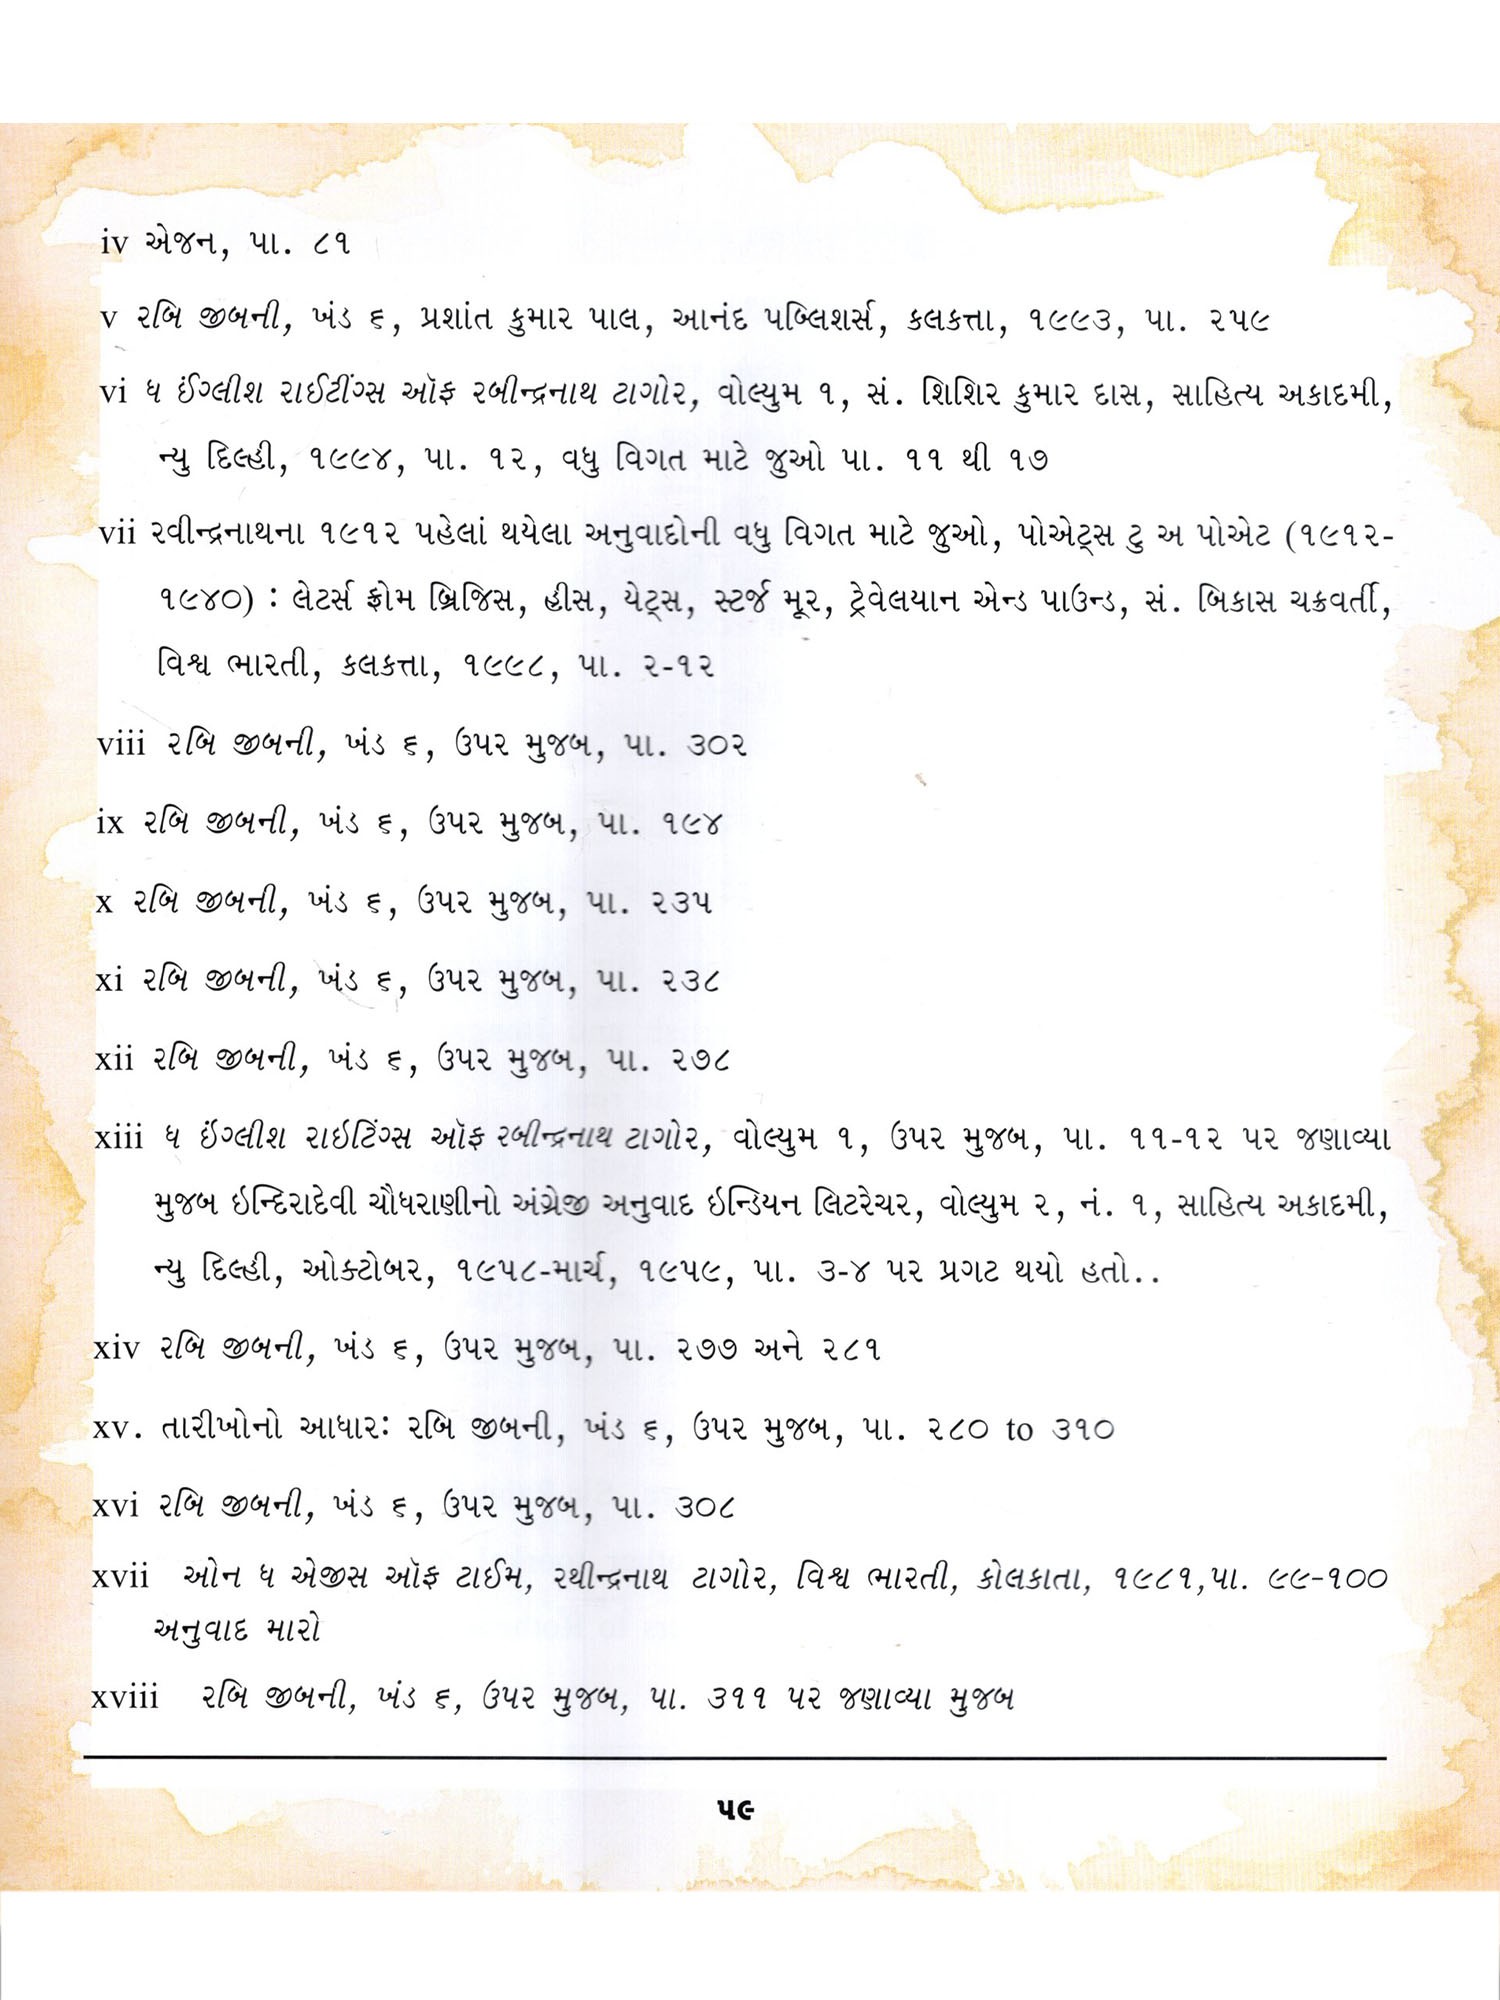 iv એજન, પા. ૮૧
v રબિ જીબની, ખંડ ૬, પ્રશાંત કુમાર પાલ, આનંદ પબ્લિશર્સ, કલકત્તા, ૧૯૯૩, પા. ૨૫૯
vi ધ ઈંગ્લીશ રાઈટીંગ્સ ઑફ રબીન્દ્રનાથ ટાગોર, વોલ્યુમ ૧, સં. શિશિર કુમાર દાસ, સાહિત્ય અકાદમી,
ન્યુ દિલ્હી, ૧૯૯૪, પા. ૧૨, વધુ વિગત માટે જુઓ પા. ૧૧ થી ૧૭
vii રવીન્દ્રનાથના ૧૯૧૨ પહેલાં થયેલા અનુવાદોની વધુ વિગત માટે જુઓ, પોએટ્સ ટુ અ પોએટ (૧૯૧૨-
૧૯૪૦) : લેટર્સ ફ્રોમ બ્રિજિસ, હીસ, યેટ્સ, સ્ટર્જ મૂર, ટ્રેવેલયાન એન્ડ પાઉન્ડ, સં. બિકાસ ચક્રવર્તી,
વિશ્વ ભારતી, કલકત્તા, ૧૯૯૮, પા. ૨-૧૨
viii રબિ જીબની, ખંડ ૬, ઉપર મુજબ, પા. ૩૦૨
ix રબિ જીબની, ખંડ ૬, ઉપર મુજબ, પા. ૧૯૪
x રબિ જીબની, ખંડ ૬, ઉપર મુજબ, પા. ૨૩૫
xi રબિ જીબની, ખંડ ૬, ઉપર મુજબ, પા. ૨૩૮
xii રબિ જીબની, ખંડ ૬, ઉપર મુજબ, પા. ૨૭૮
xiii ધ ઇંગ્લીશ રાઇટિંગ્સ ઑફ રબીન્દ્રનાથ ટાગોર, વોલ્યુમ ૧, ઉપર મુજબ, પા. ૧૧-૧૨ પર જણાવ્યા
મુજબ ઇન્દિરાદેવી ચૌધરાણીનો અંગ્રેજી અનુવાદ ઇન્ડિયન લિટરેચર, વોલ્યુમ ૨, નં. ૧, સાહિત્ય અકાદમી,
ન્યુ દિલ્હી, ઓક્ટોબર, ૧૯૫૮-માર્ચ, ૧૯૫૯, પા. ૩-૪ પર પ્રગટ થયો હતો..
xiv રબિ જીબની, ખંડ ૬, ઉપર મુજબ, પા. ૨૭૭ અને ૨૮૧
xv. તારીખોનો આધારઃ રબિ જીબની, ખંડ ૬, ઉપર મુજબ, પા. ૨૮૦ to ૩૧૦
xvi રબિ જીબની, ખંડ ૬, ઉપર મુજબ, પા. ૩૦૮
xvii ઓન ધ એજીસ ઑફ ટાઈમ, રથીન્દ્રનાથ ટાગોર, વિશ્વ ભારતી, કોલકાતા, ૧૯૮૧,પા. ૯૯-૧૦૦
અનુવાદ મારો
xviii રબિ જીબની, ખંડ ૬, ઉપર મુજબ, પા. ૩૧૧ પર જણાવ્યા મુજબ
૫૯